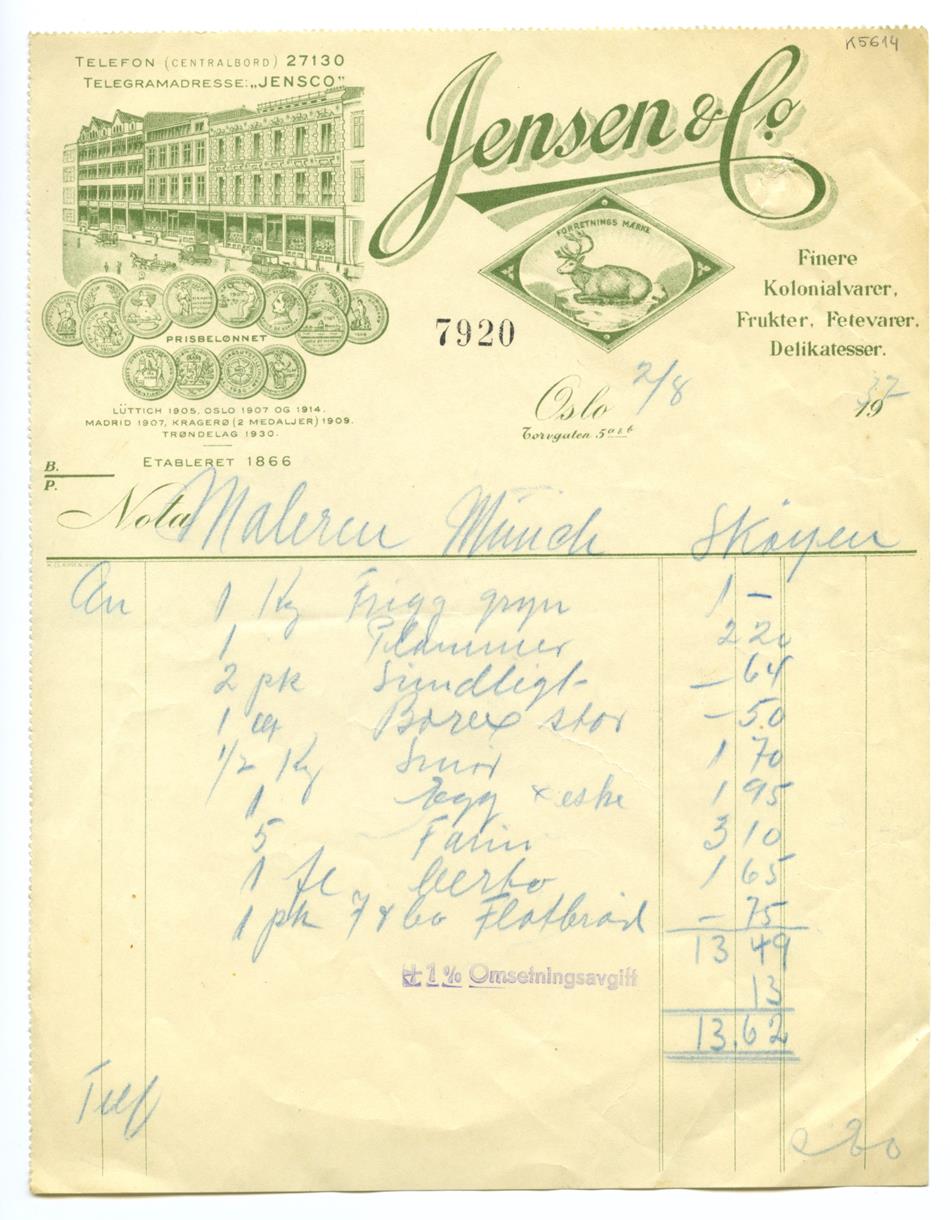 K5614
TELEFON (CENTRALBORD) 27130
TELEGRAMADRESSE: „JENSCO"
Jensen & Co.
FORRETNINGS MÆRKE
PRISBELØNNET
LÜTTICH 1905, OSLO 1907 OG 1914.
MADRID 1907, KRAGERØ (2 MEDALJER) 1909.
TRØNDELAG 1930.
ETABLERET 1866
7920
Finere
Kolonialvarer,
Frukter, Fetevarer,
Delikatesser.
Oslo 2/8 1937
Torvgaten 5 a & b
B.
P.
Nota Maleren Münch Skøyen
An 1 Kg Frigg gryn 1 –
1 Plommer 2 20
2 pk Sundligt – 64
1 Borax stor – 50
1/2 Kg Smør 1 70
1 Egg + eske 1 95
5 Farin 3 10
1 fl 1 65
1 pk Flatbrød – 75
13 49
+ 1 % Omsetningsavgift 13
13.62
Telf